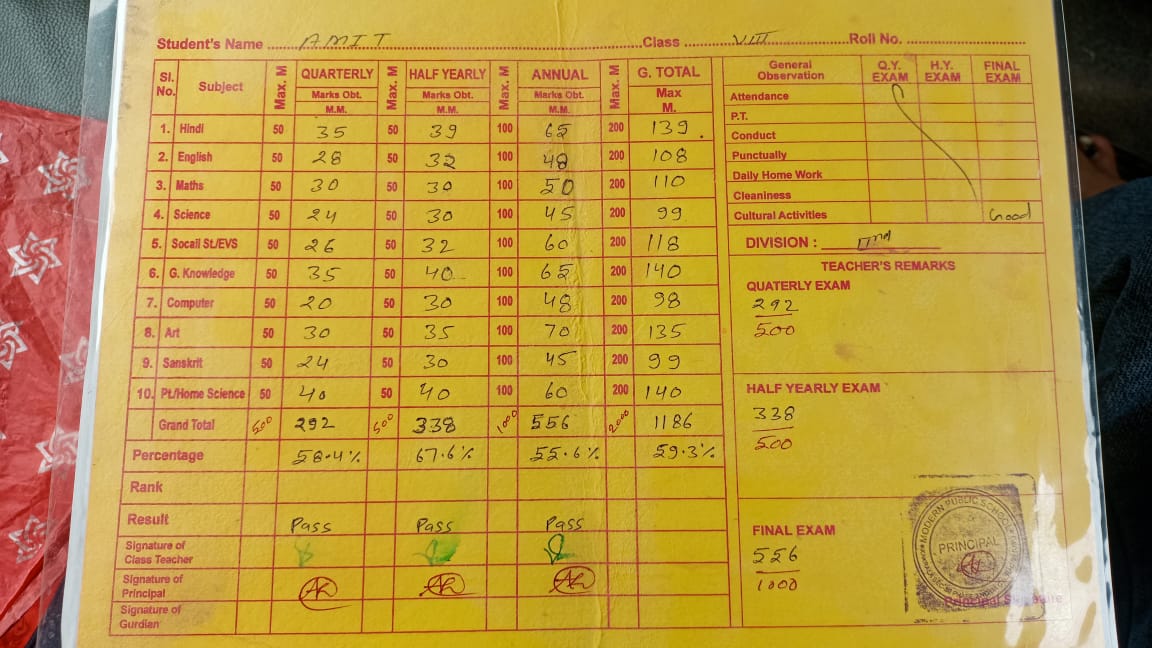 Student's Name AMIT Class VIII Roll No.
Sl. No. Subject Max. M QUARTERLY Marks Obt. M.M. Max. M HALF YEARLY Marks Obt. M.M. Max. M ANNUAL Marks Obt. M.M. Max. M G. TOTAL Max M.
1. Hindi 50 35 50 39 100 65 200 139
2. English 50 28 50 32 100 48 200 108
3. Maths 50 30 50 30 100 50 200 110
4. Science 50 24 50 30 100 45 200 99
5. Socail St./EVS 50 26 50 32 100 60 200 118
6. G. Knowledge 50 35 50 40 100 65 200 140
7. Computer 50 20 50 30 100 48 200 98
8. Art 50 30 50 35 100 70 200 135
9. Sanskrit 50 24 50 30 100 45 200 99
10. Pt./Home Science 50 40 50 40 100 60 200 140
Grand Total 500 292 500 338 1000 556 2000 1186
Percentage 58.4% 67.6% 55.6% 59.3%
Rank
Result Pass Pass Pass
Signature of
Class Teacher
Signature of
Principal
Signature of
Gurdian
General Observation Q.Y. EXAM H.Y. EXAM FINAL EXAM
Attendance
P.T.
Conduct
Punctually
Daily Home Work
Cleaniness
Cultural Activities Good
DIVISION :
TEACHER'S REMARKS
QUATERLY EXAM
292
500
HALF YEARLY EXAM
338
500
FINAL EXAM
556
1000
MODERN PUBLIC SCHOOL
PRINCIPAL
Principal Signature